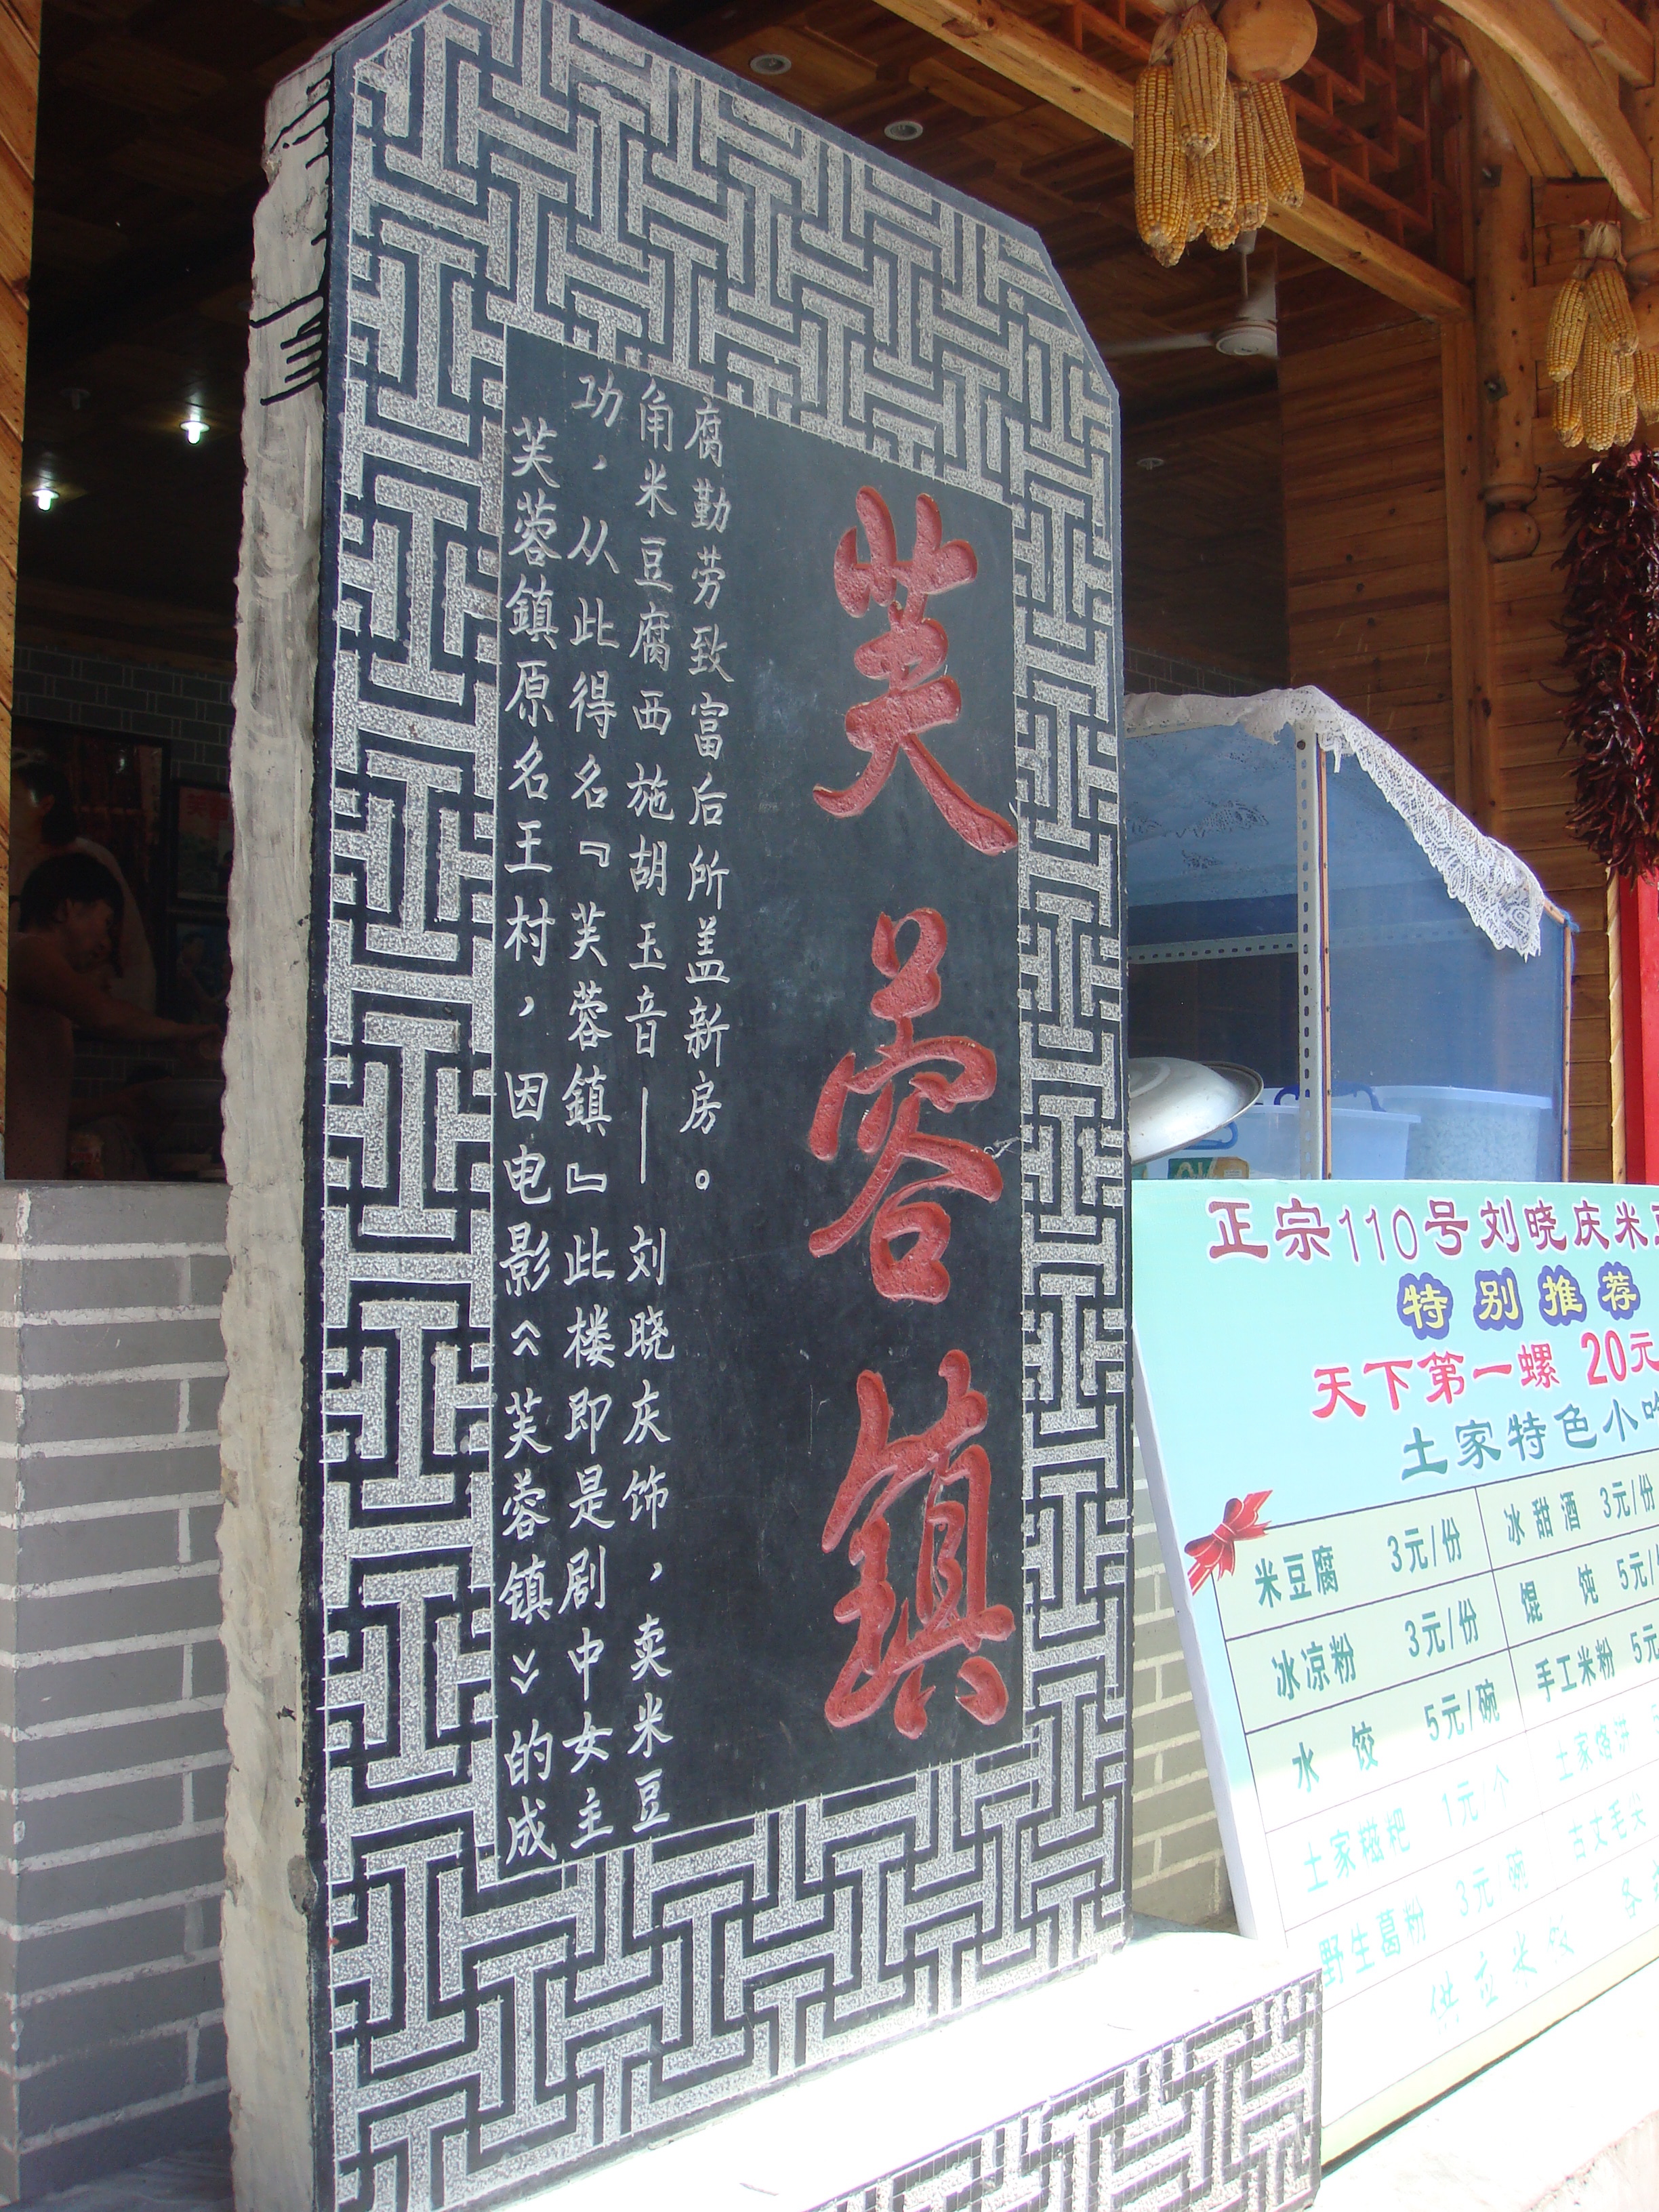 芙蓉鎮
芙蓉鎮原名王村，因电影《芙蓉镇》的成
功，从此得名『芙蓉鎮』此楼即是剧中女主
角米豆腐西施胡玉音——刘晓庆饰，卖米豆
腐勤劳致富后所盖新房。
正宗110号刘晓庆米豆
特别推荐
天下第一螺 20元
土家特色小吃
米豆腐 3元/份 冰甜酒 3元/份
冰凉粉 3元/份 馄饨 5元/
水饺 5元/碗 手工米粉 5元
土家糍粑 1元/个 土家
野生葛粉 3元/碗 古丈毛尖
供应米